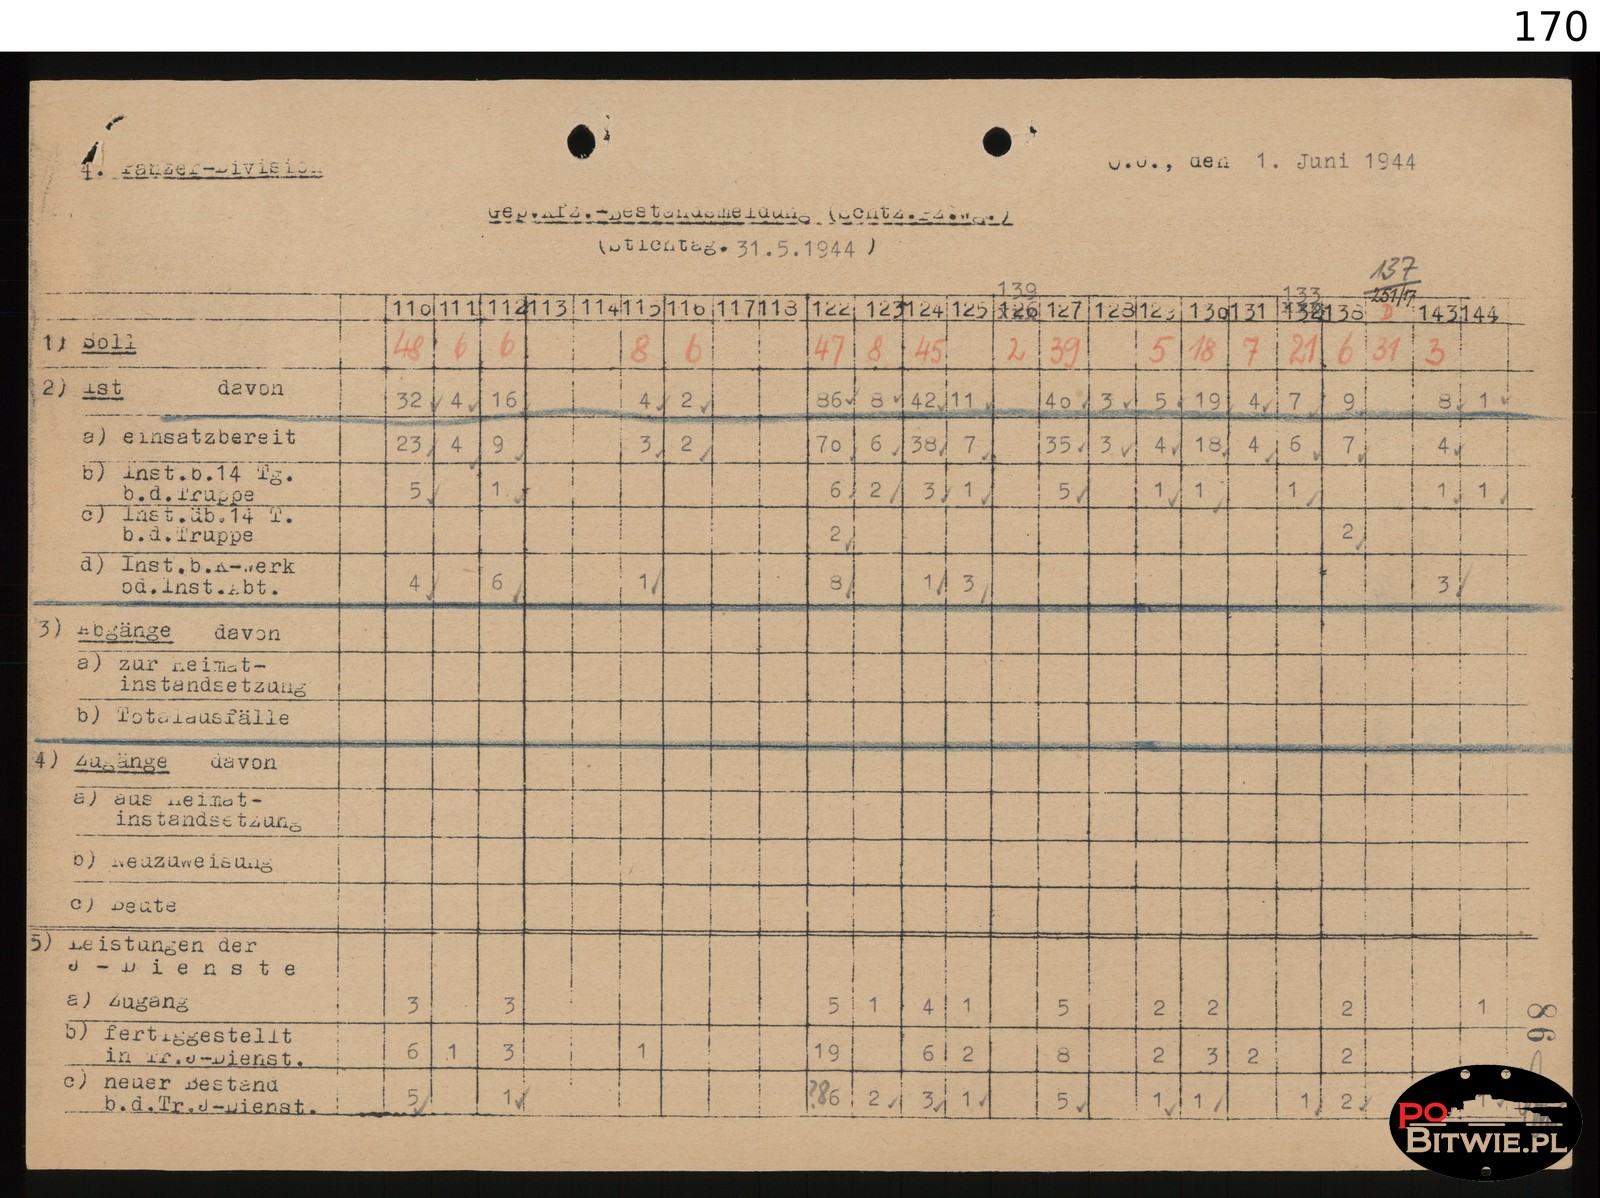 170
4. Panzer-Division
O.U., den 1. Juni 1944
Gep.Kfz.-Bestandsmeldung (Schtz.Pz.Wg.)
(Stichtag. 31.5.1944 )
139 133 137
110 111 112 113 114 115 116 117 118 122 123 124 125 126 127 128 129 130 131 132 138 251/17 D 143 144
1) Soll 48 6 6 8 6 47 8 45 2 39 5 18 7 21 6 31 3
2) Ist davon 32 4 16 4 2 86 8 42 11 40 3 5 19 4 7 9 8 1
a) einsatzbereit 23 4 9 3 2 70 6 38 7 35 3 4 18 4 6 7 4
b) Inst.b.14 Tg.
b.d.Truppe 5 1 6 2 3 1 5 1 1 1 1 1
c) Inst.üb.14 T.
b.d.Truppe 2 2
d) Inst.b.K-Werk
od.Inst.Abt. 4 6 1 8 1 3 3
3) Abgänge davon
a) zur Heimat-
instandsetzung
b) Totalausfälle
4) Zugänge davon
a) aus Heimat-
instandsetzung
b) Neuzuweisung
c) Beute
5) Leistungen der
J - D i e n s t e
a) Zugang 3 3 5 1 4 1 5 2 2 2 1
b) fertiggestellt
in Tr.J-Dienst. 6 1 3 1 19 6 2 8 2 3 2 2
c) neuer Bestand
b.d.Tr.J-Dienst. 5 1 ?86 2 3 1 5 1 1 1 2 1
98
PO
BITWIE.PL